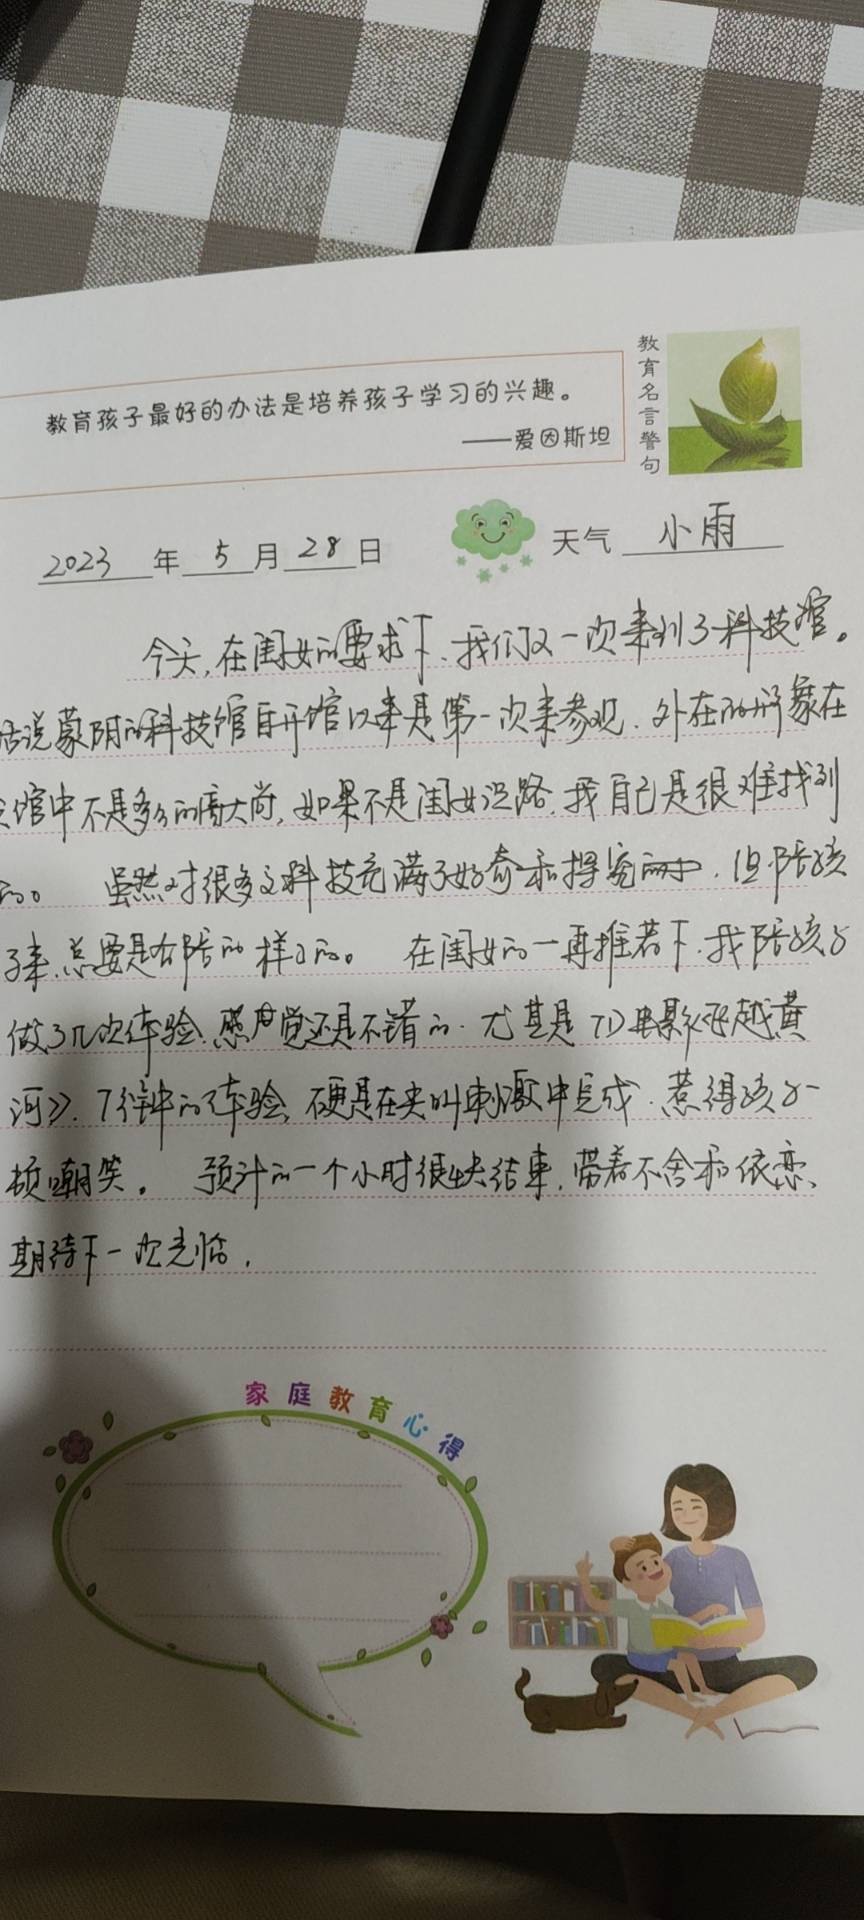 教育孩子最好的办法是培养孩子学习的兴趣。
——爱因斯坦
教育名言警句
2023年5月28日 天气 小雨
今天,在闺女的要求下、我们又一次来到了科技馆。
话说蒙阴的科技馆自开馆以来是第一次来参观.外在的形象在
馆中不是多么的高大尚,如果不是闺女识路.我自己是很难找到
的。 虽然对很多文科技充满了好奇和探究,但陪孩
子来,总要是有陪的样子的。 在闺女的一再推荐下.我陪孩子
做了几次体验.感觉还是不错的.尤其是7D电影《飞越黄
河》.7分钟的体验,硬是在尖叫刺激中完成.惹得孩子一
顿嘲笑。 预计的一个小时很快结束,带着不舍和依恋、
期待下一次光临.
家庭教育心得